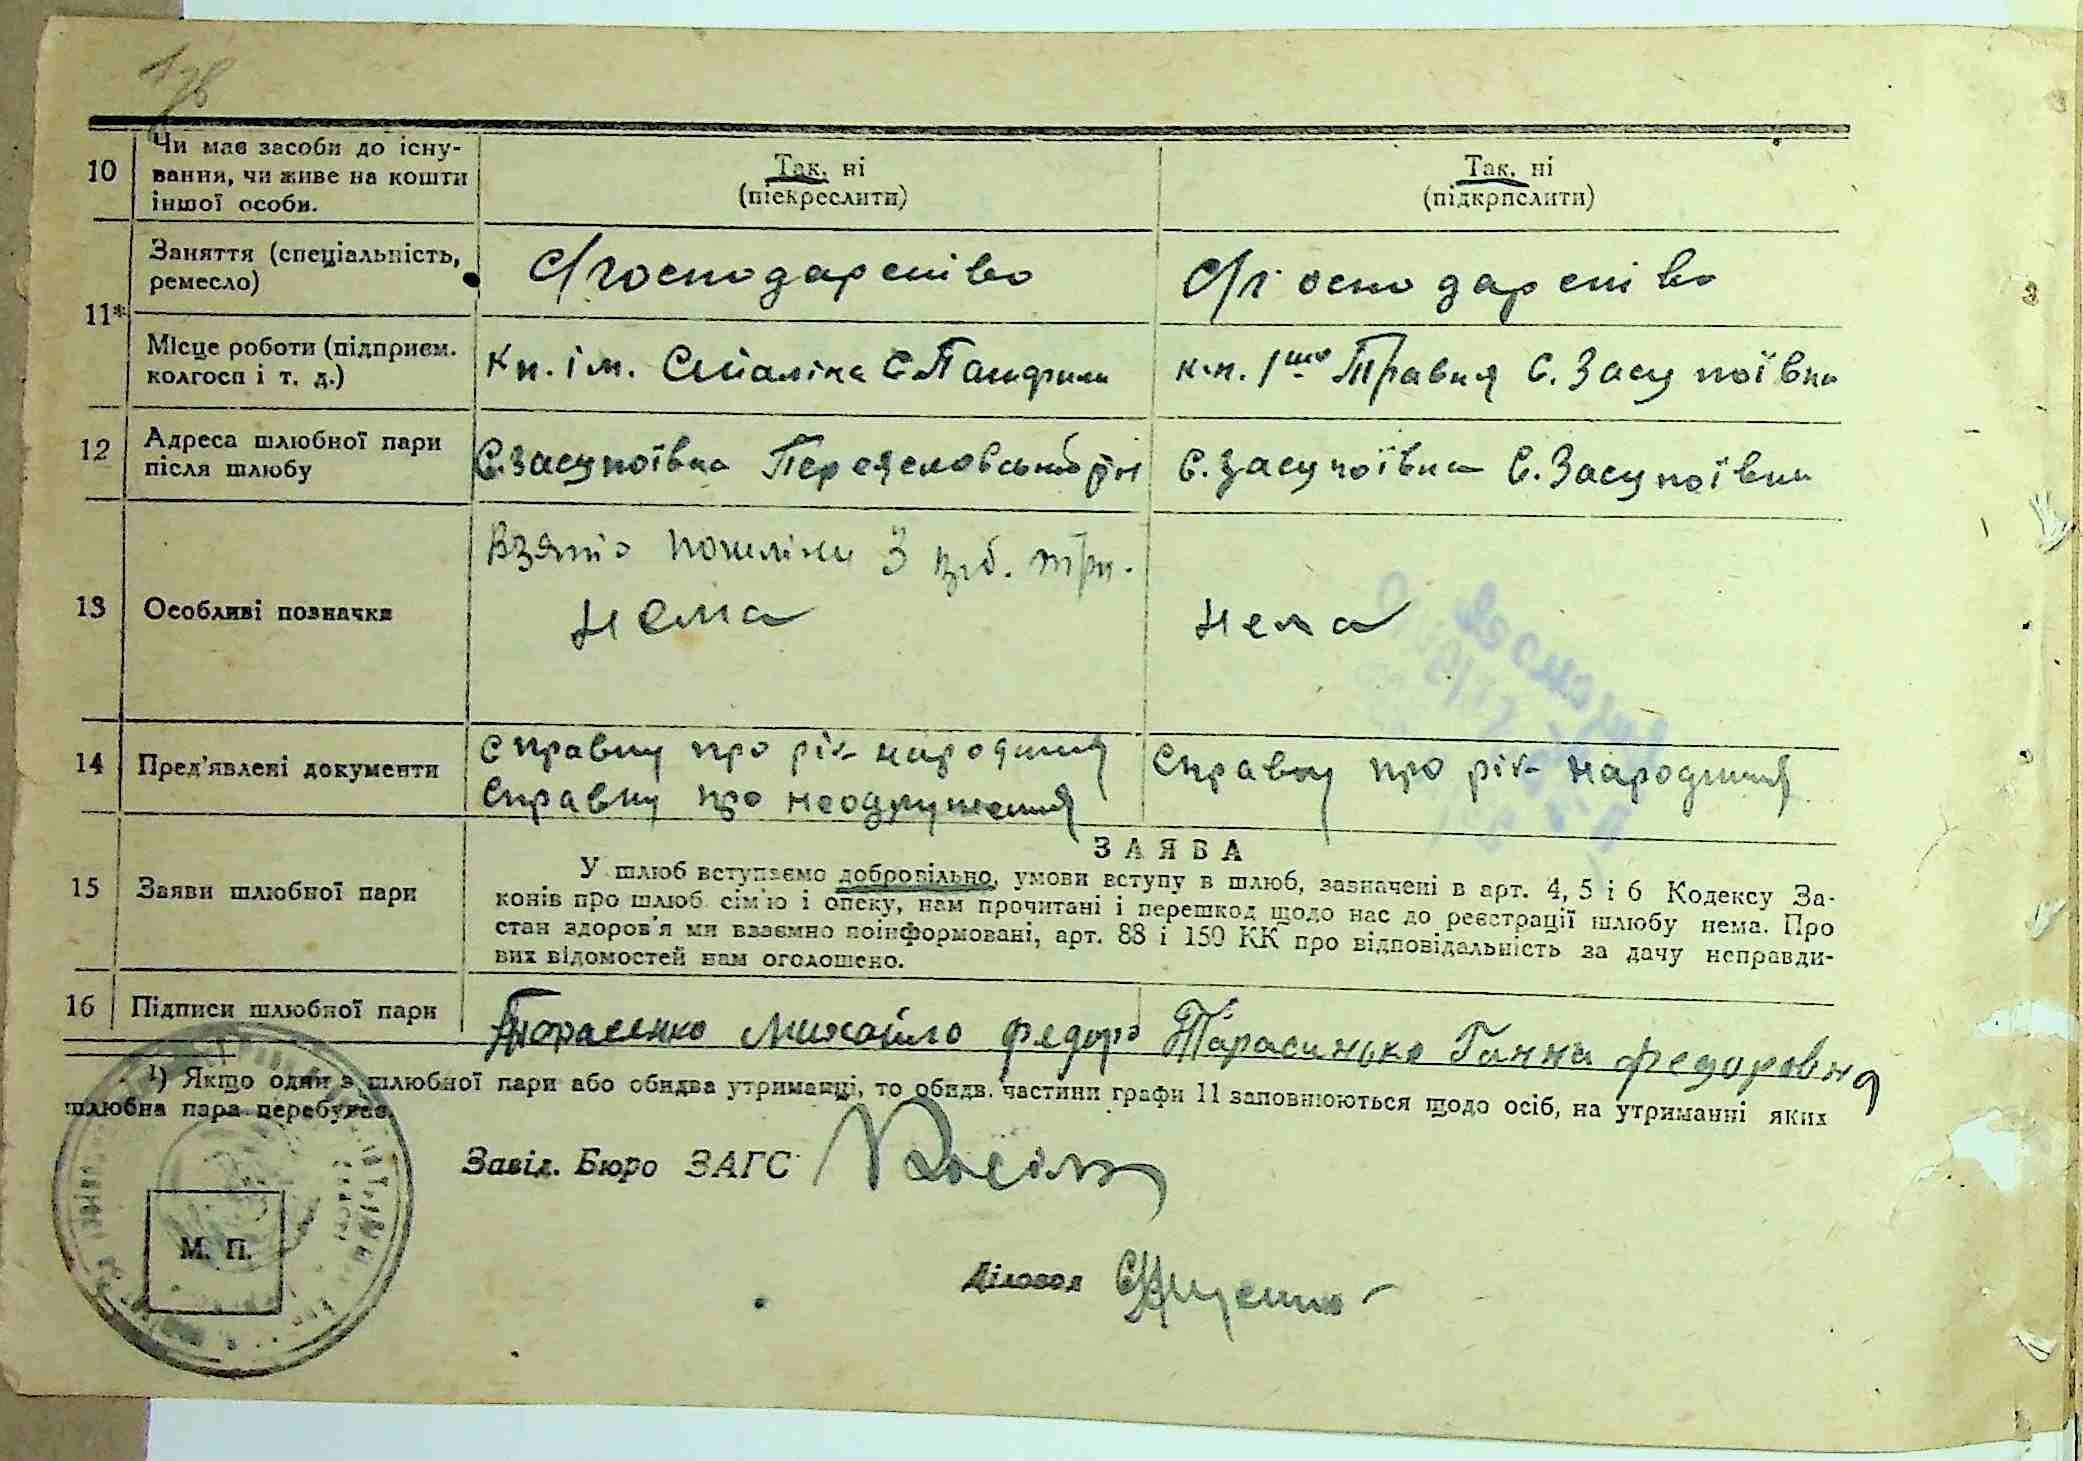 10 Чи має засоби до існу-
вання, чи живе на кошти
іншої особи.
Так, ні
(піекреслити)
Так, ні
(підкрпслити)
11* Заняття (спеціальність,
ремесло)
С/господарство
С/господарство
Місце роботи (підприєм.
колгосп і т. д.)
Кп. ім. Сталіна С.
к.п. 1шо Травня С. Засупоївка
12 Адреса шлюбної пари
після шлюбу
С. Засупоївка
С. Засупоївка С. Засупоївка
13 Особливі позначки
Взято 3
Нема
Нема
14 Пред'явлені документи
Справку про рік народження
Справку про неодруження
Справку про рік народження
15 Заяви шлюбної пари
ЗАЯВА
У шлюб вступаємо добровільно, умови вступу в шлюб, зазначені в арт. 4, 5 і 6 Кодексу За-
конів про шлюб сім'ю і опеку, нам прочитані і перешкод щодо нас до реєстрації шлюбу нема. Про
стан здоров'я ми взаємно поінформовані, арт. 88 і 150 КК про відповідальність за дачу неправди-
вих відомостей нам оголошено.
16 Підписи шлюбної пари
Тарасенко Михайло Федоро
Тарасинько Ганна Федоровна
¹) Якщо один з шлюбної пари або обидва утриманці, то обидв. частини графи 11 заповнюються щодо осіб, на утриманні яких
шлюбна пара перебуває.
Завід. Бюро ЗАГС
Діловод
М. П.